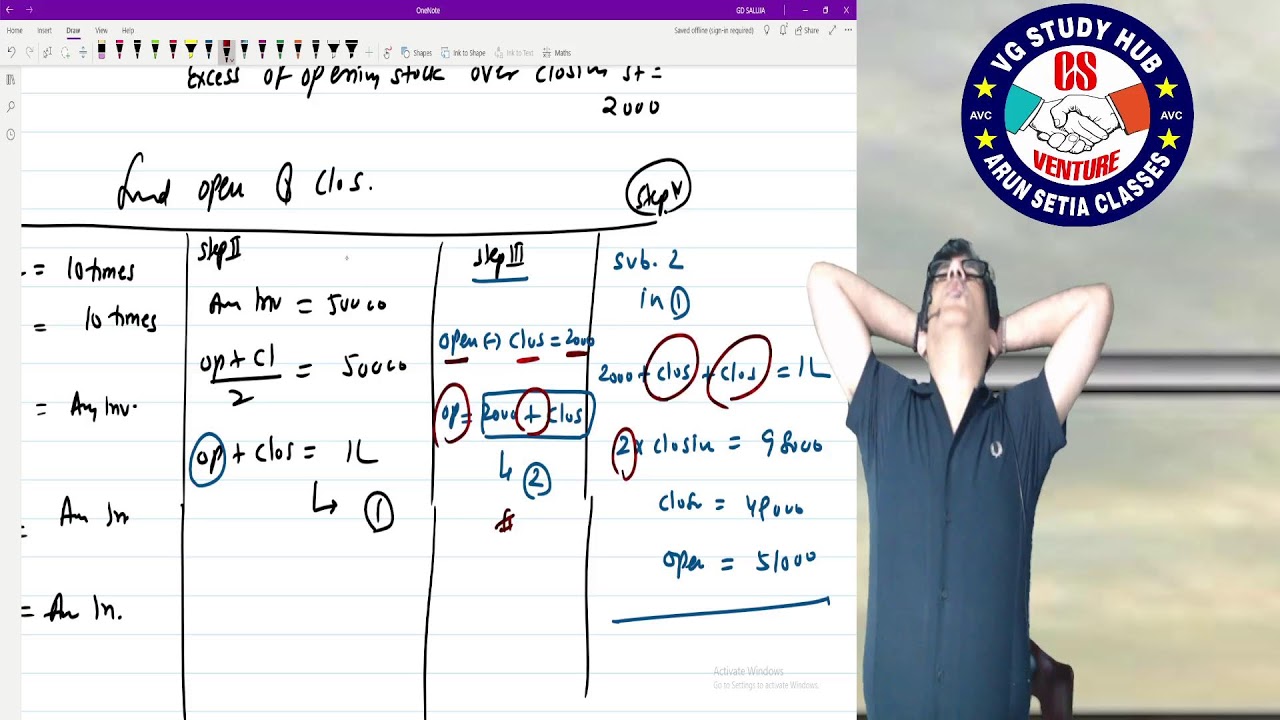 OneNote
GD SALUJA
Home Insert Draw View Help
Saved offline (sign-in required)
Share
Shapes
Ink to Shape
Ink to Text
Maths
Excess of opening stock over closin st =
2000
open & Clos.
Step V
= 10 times
= 10 times
= Avg Inv.
= An In
= An In.
Step II
An Inv = 50000
op + Cl / 2 = 50000
op + Clos = 1L
↳ ①
Step III
open (-) Clos = 2000
op = 2000 + Clos
↳ ②
Sub. 2
in ①
2000 + Clos + Clos = 1L
2 x Closin = 98000
open = 51000
Activate Windows
Go to Settings to activate Windows.
VG STUDY HUB
AVC
AVC
VENTURE
ARUN SETIA CLASSES